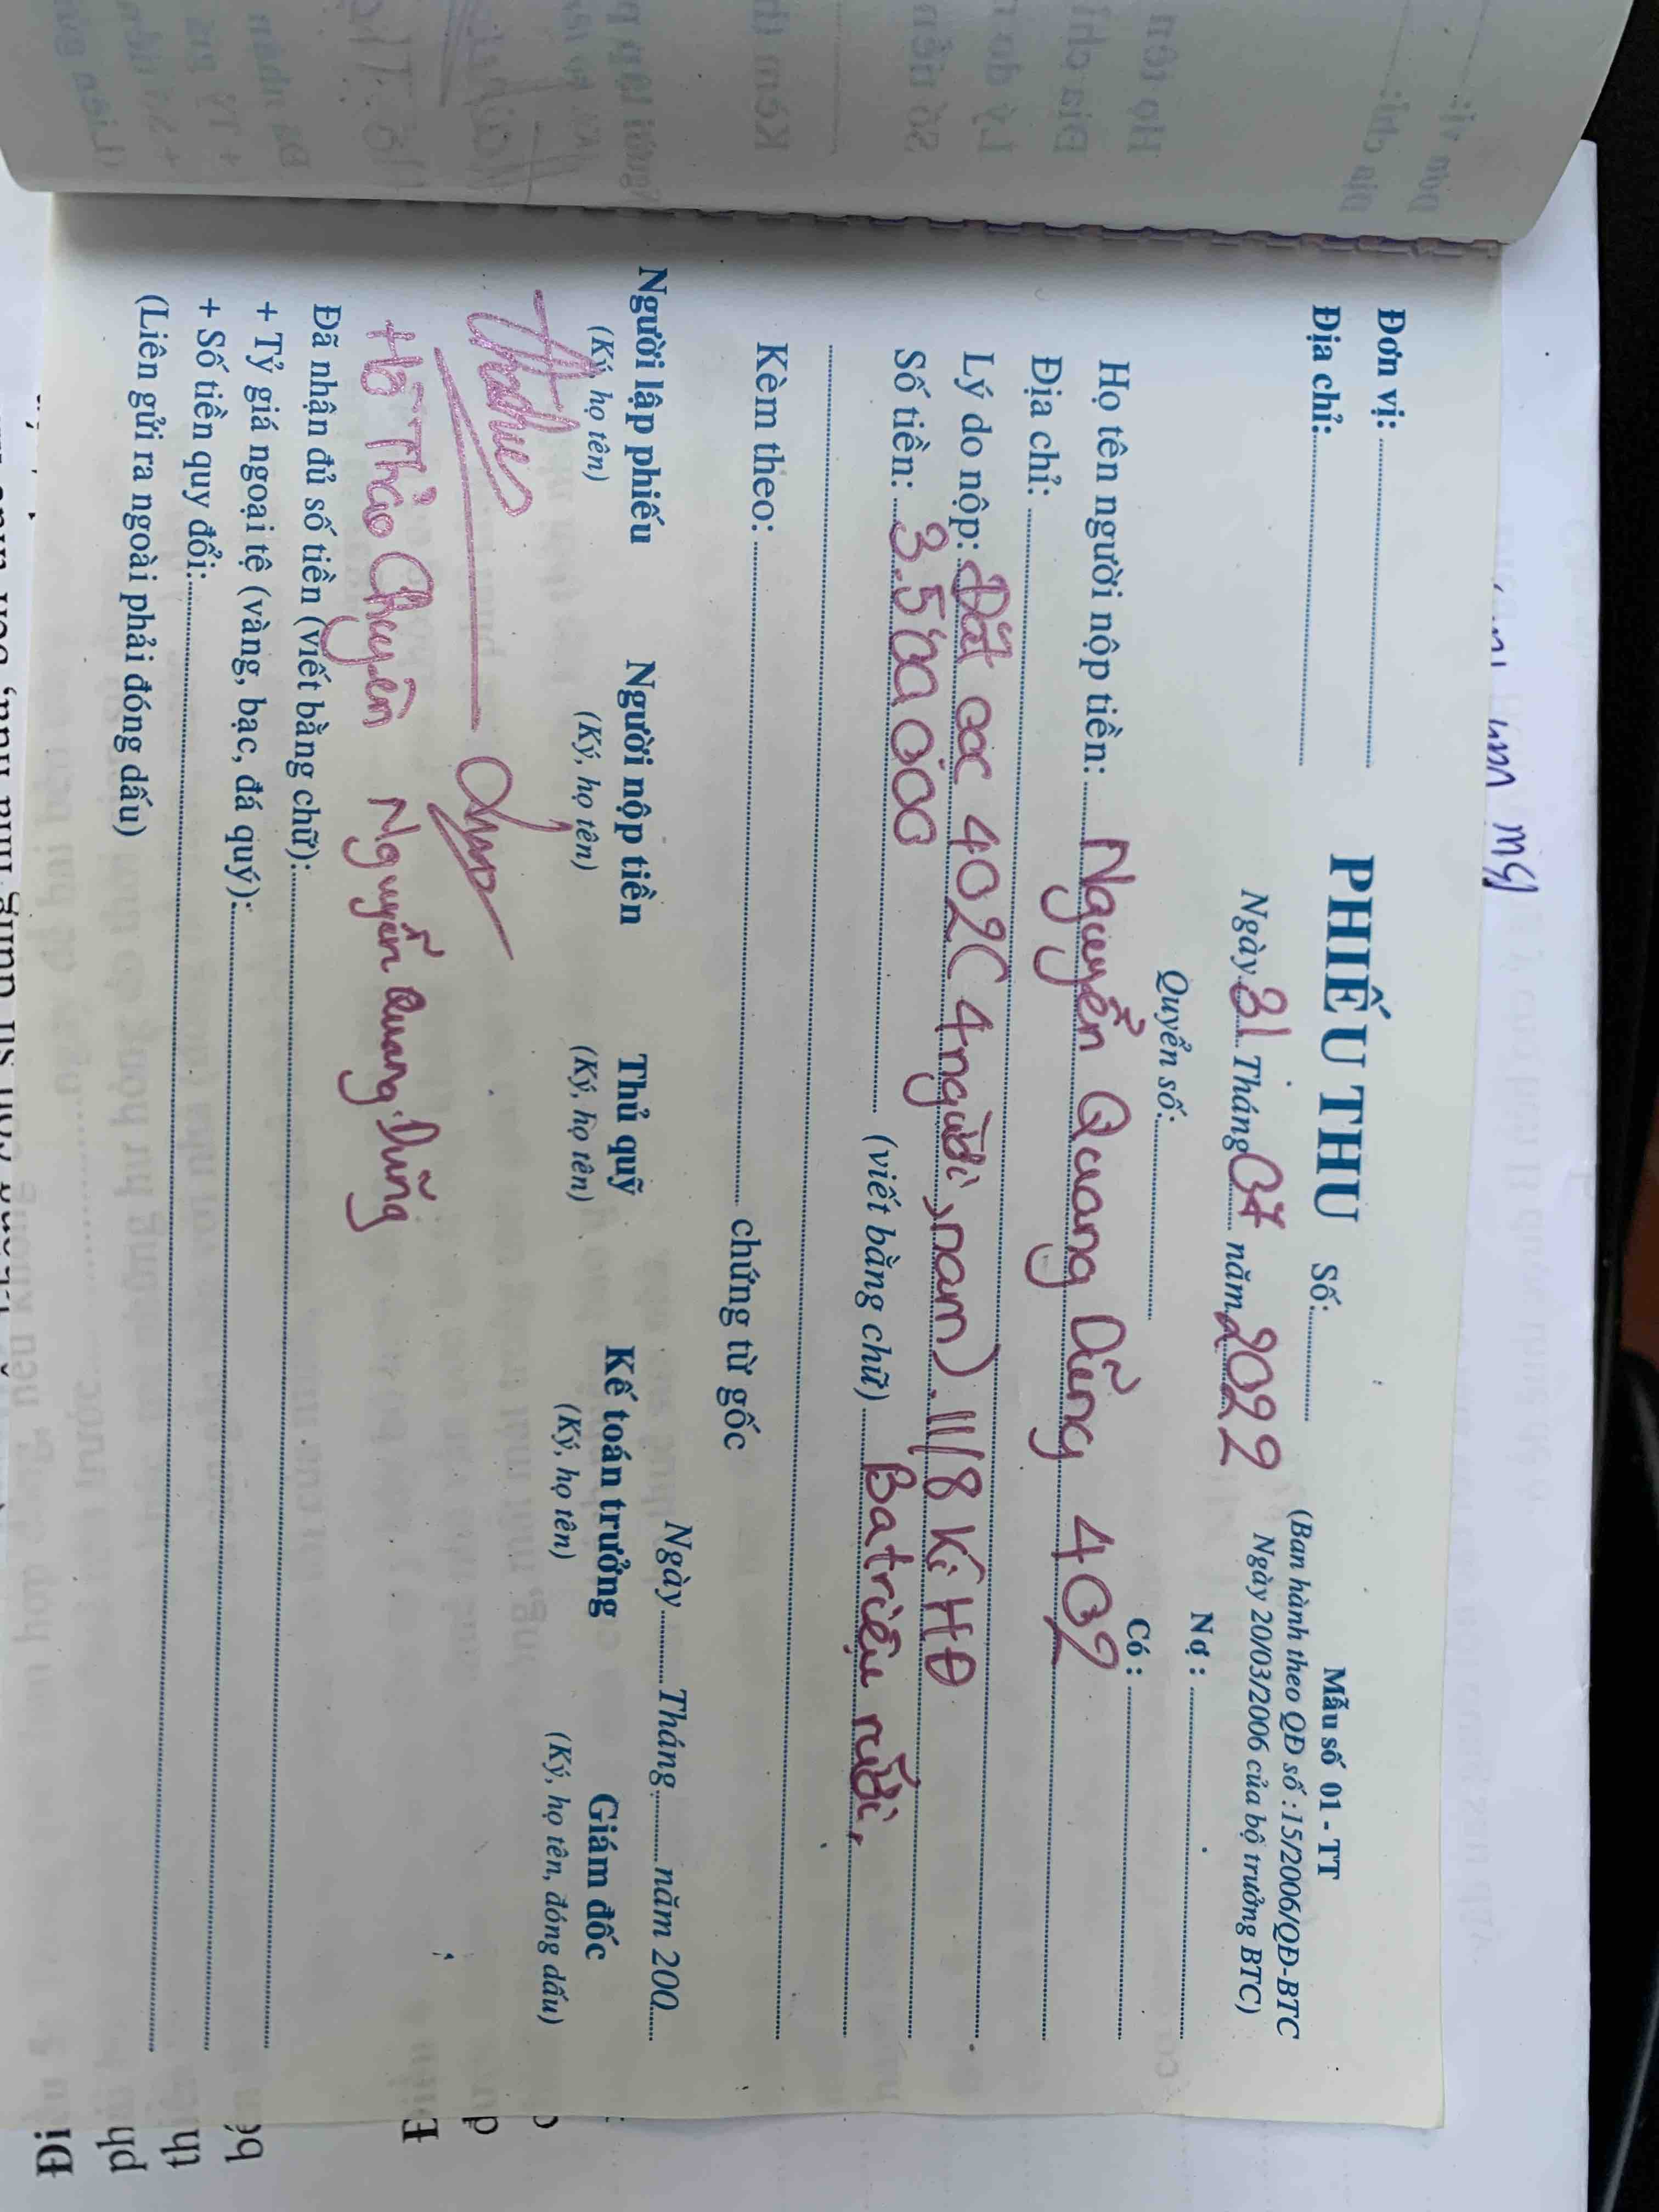 Đơn vị:
Địa chỉ:
PHIẾU THU Số:
Ngày 31 Tháng 07 năm 2022
Quyển số:
Mẫu số 01 - TT
(Ban hành theo QĐ số : 15/2006/QĐ-BTC
Ngày 20/03/2006 của bộ trưởng BTC)
Nợ :
Có :
Họ tên người nộp tiền: Nguyễn Quang Dũng 402
Địa chỉ:
Lý do nộp: Đặt cọc 402 ( 4 người , nam ) . 11/8 Kí HĐ
Số tiền: 3.500 000 (viết bằng chữ) Ba triệu rưỡi,
Kèm theo: chứng từ gốc
Ngày Tháng năm 200
Người lập phiếu Người nộp tiền Thủ quỹ Kế toán trưởng Giám đốc
(Ký, họ tên) (Ký, họ tên) (Ký, họ tên) (Ký, họ tên) (Ký, họ tên, đóng dấu)
Hồ Thảo Chuyên Nguyễn Quang Dũng
Đã nhận đủ số tiền (viết bằng chữ):
+ Tỷ giá ngoại tệ (vàng, bạc, đá quý):
+ Số tiền quy đổi:
(Liên gửi ra ngoài phải đóng dấu)